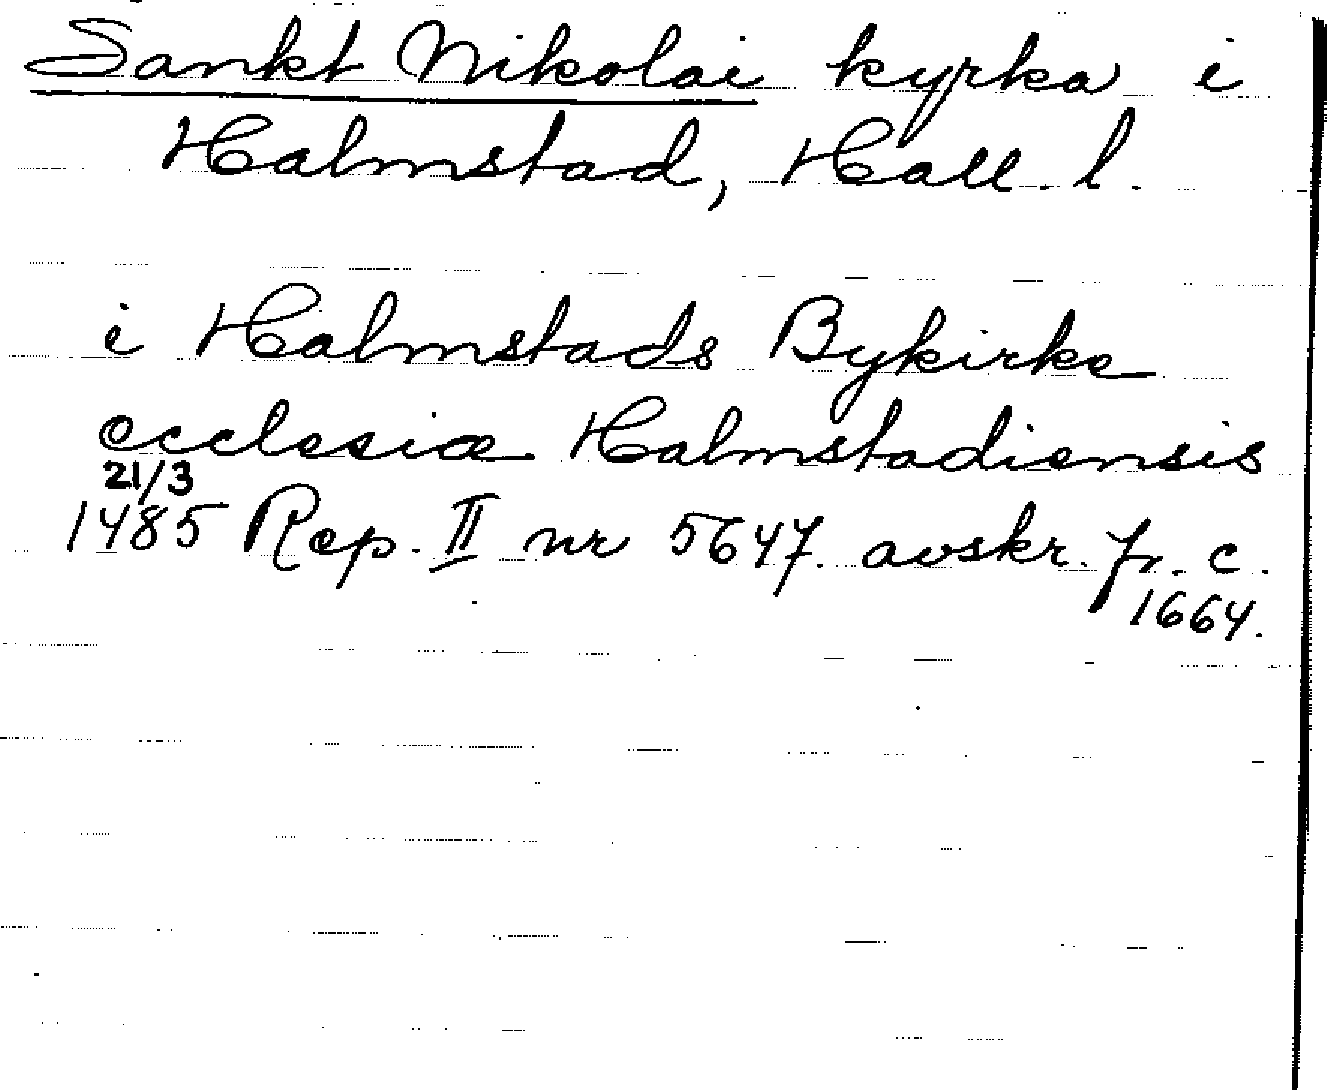 Sankt Nikolai kyrka i
Halmstad, Hall. l.
i Halmstads Bykirke
ecclesiæ Halmstadiensis
21/3
1485 Rep. II nr 5647. avskr. fr. c.
1664.